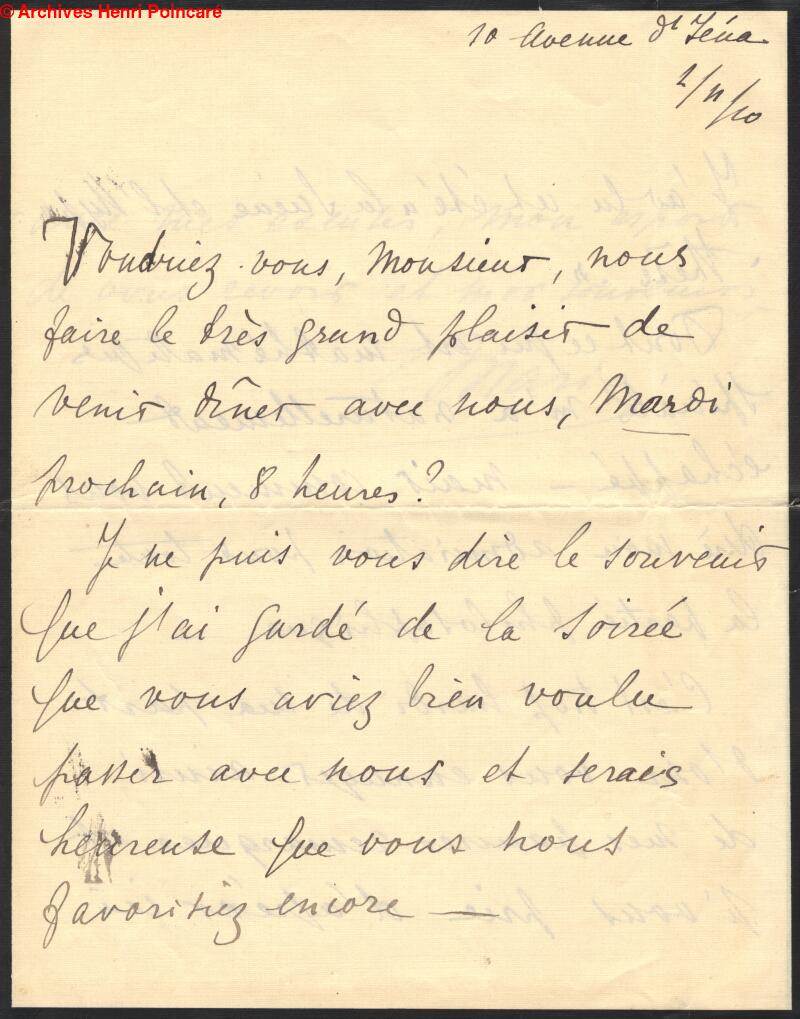 © Archives Henri Poincaré
10 Avenue d'Iéna
2/11/10
Voudriez vous, Monsieur, nous
faire le très grand plaisir de
venir dîner avec nous, Mardi
prochain, 8 heures?
Je ne puis vous dire le souvenir
que j'ai gardé de la soirée
que vous aviez bien voulu
passer avec nous et serais
heureuse que vous nous
favorisiez encore —